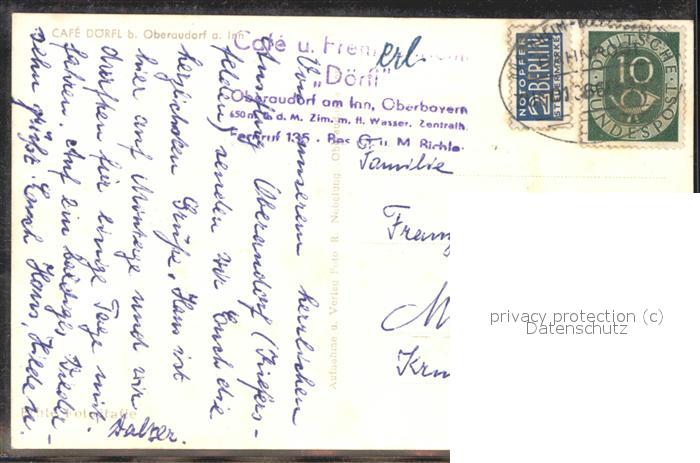 CAFÉ DÖRFL b. Oberaudorf a. Inn
Café u. Frem
„Dörfl“
Oberaudorf am Inn, Oberbayern
650 m ü. d. M. Zim. m. fl. Wasser. Zentralh.
Fernruf 135 - Bes. G. u. M Richle
erl
NOTOPFER
2 BERLIN
STEUERMARKE
DEUTSCHE
BUNDESPOST
10
Von unserem herrlichen
Ausflug Oberaudorf (Kiefers-
felden) senden wir Euch die
herzlichsten Grüße. Hans ist
hier auf Montage und wir
durften für einige Tage mit-
fahren. Auf ein baldiges Wieder-
sehn grüßt Euch Hans, Hilde u.
Walter.
Familie
Franz
M
Kru
Aufnahme u. Verlag Foto R.
Echte Fotografie
privacy protection (c)
Datenschutz